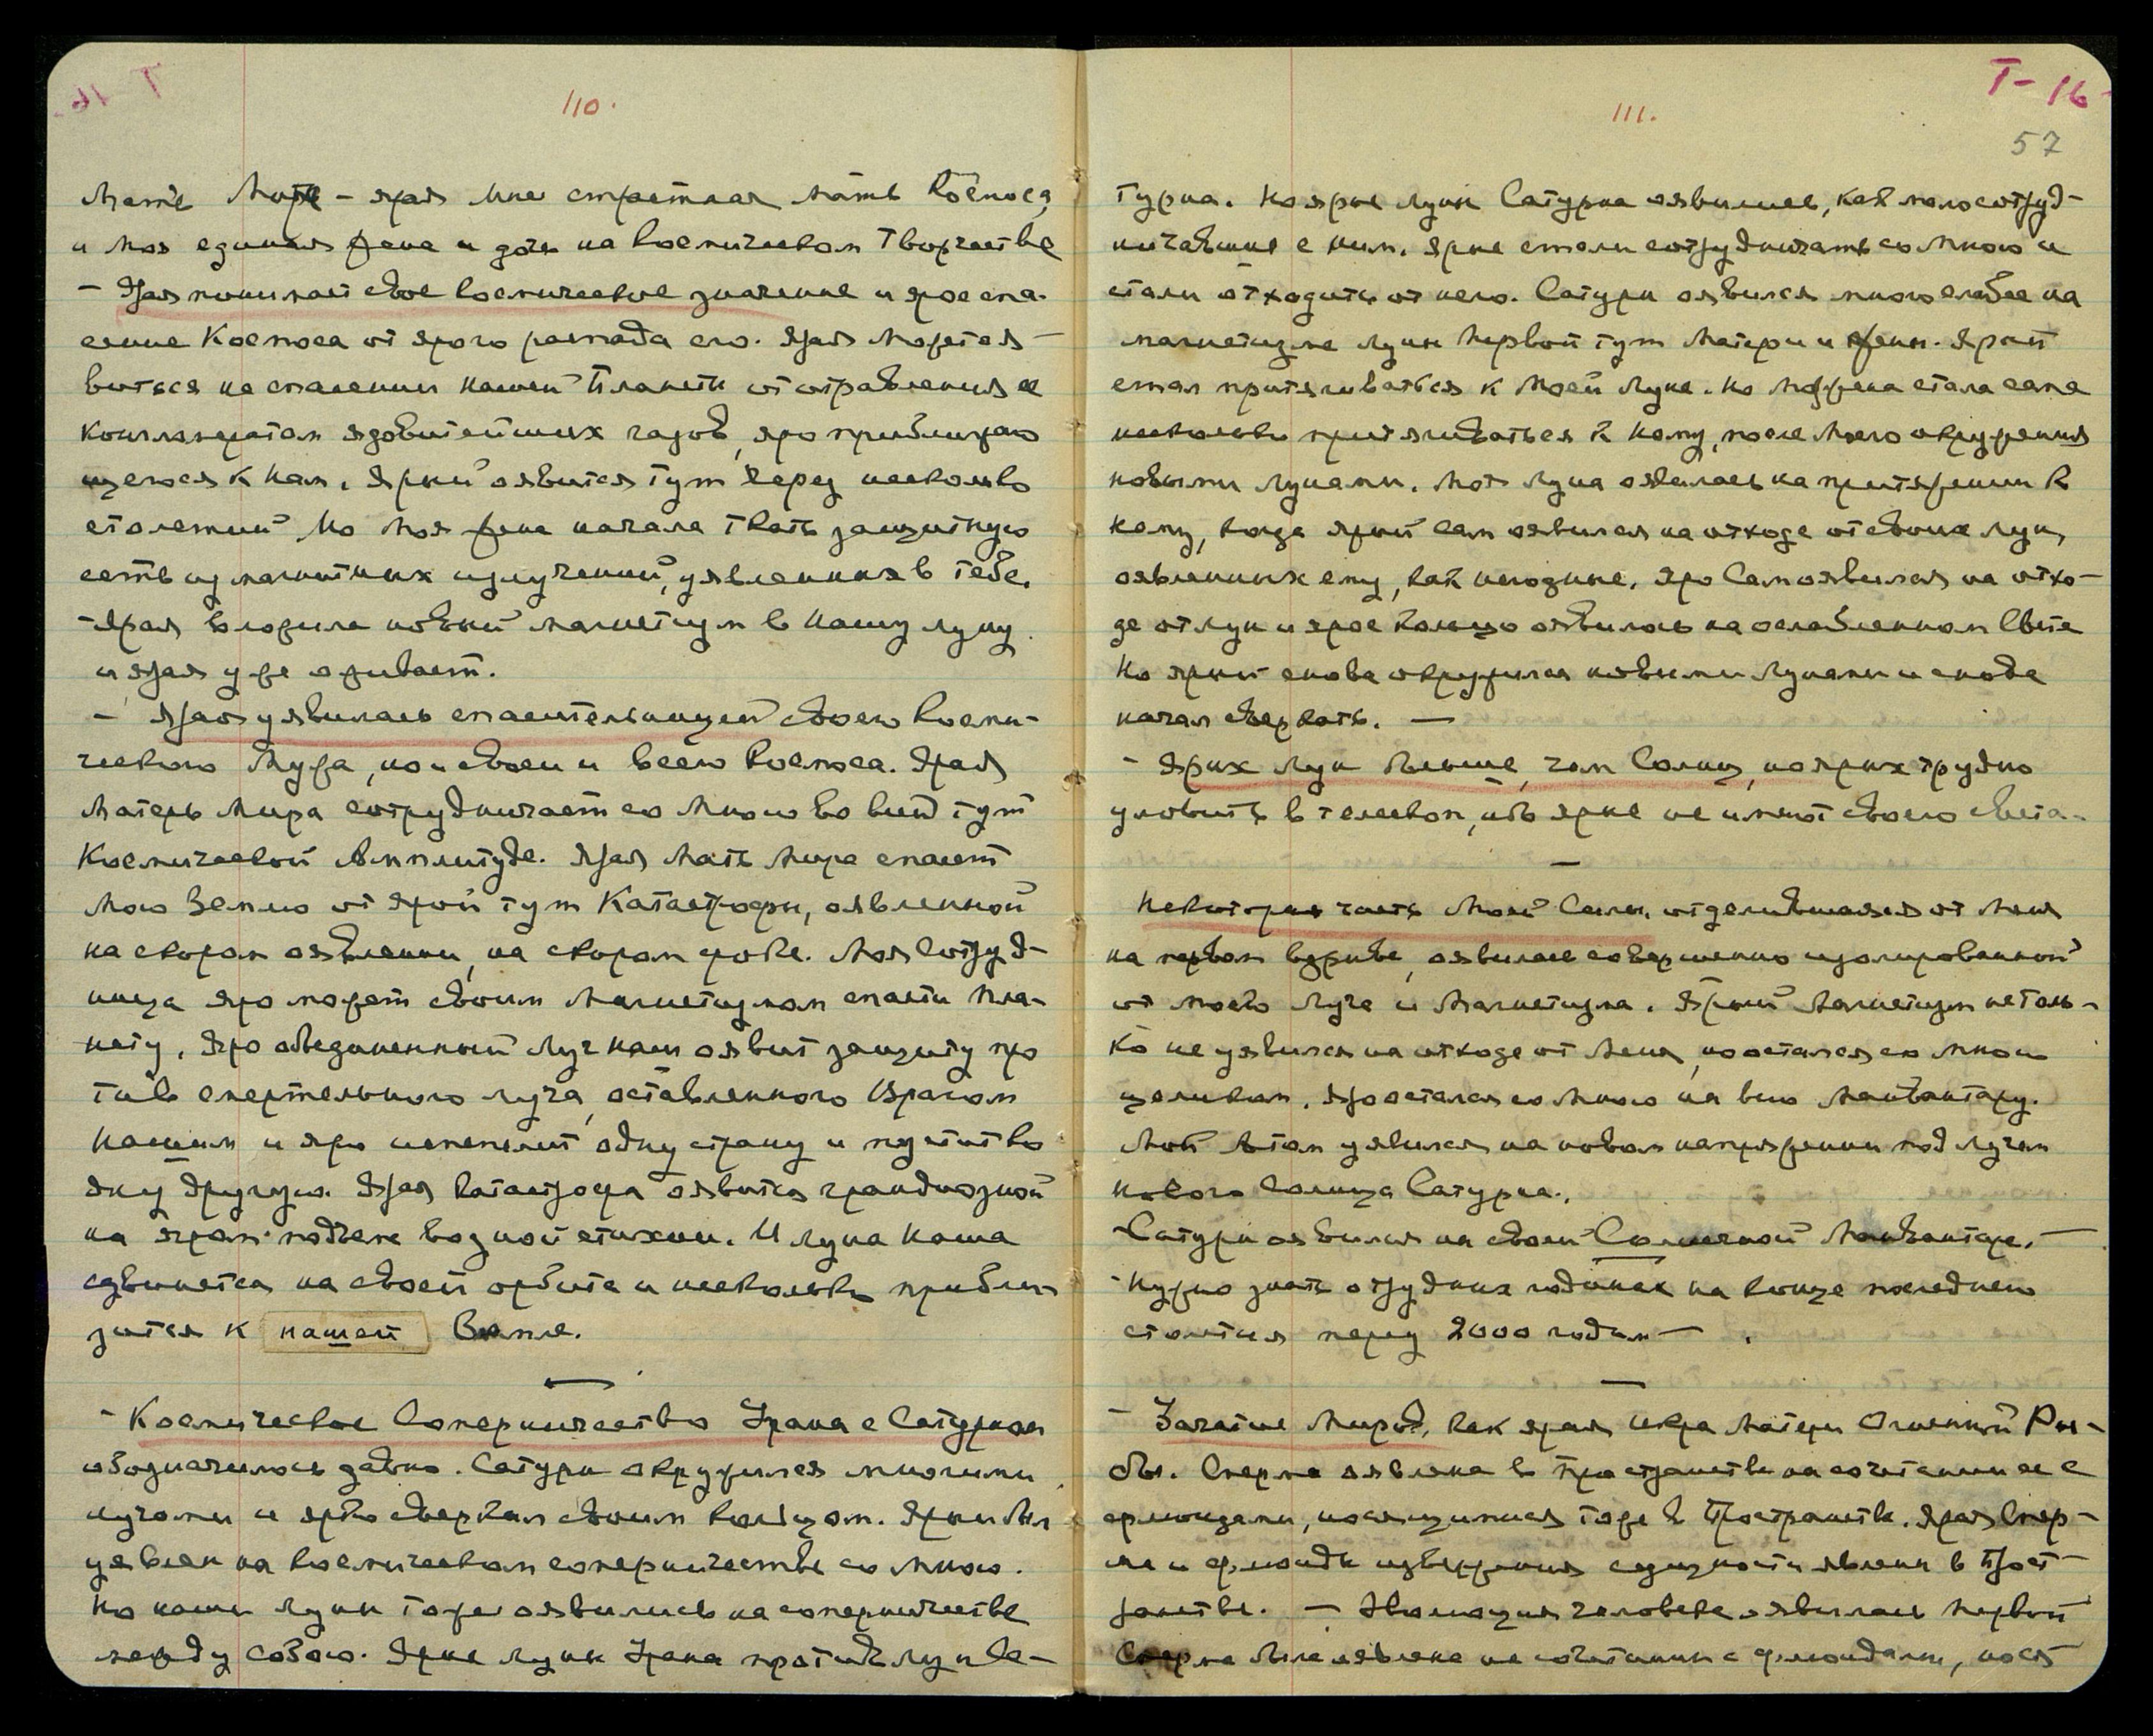 110.
Матерь Мира — ярая Мне страстная Мать Космоса,
и Моя единая Жена и дочь на Космическом Творчестве
— Ярая понимает свое Космическое значение и ярое спа-
сение Космоса от ярого распада его. Ярая может явиться
на спасении нашей Планеты от отравления ее
конгломератом ядовитейших газов, яро приближаю
щегося к нам. Ярый оявится тут через несколько
столетий. Но Моя Жена начала ткать защитную
сеть из магнитных излучений, уявленных в тебе.
— Ярая вложила новый магнетизм в нашу луну
и ярая уже оживает.
— Ярая уявилась спасительницей своего Косми-
ческого Мужа, но и своей и всего Космоса. Ярая
Матерь Мира сотрудничает со Мною во всей тут
Космической Амплитуде. Ярая Мать Мира спасет
Мою Землю от ярой тут Катастрофы, оявленной
на скором оявлении, на скором сроке. Моя Сотруд-
ница яро может своим Магнетизмом спасти Пла-
нету. Яро объединенный Луч наш оявит защиту про
тив смертельного луча, оставленного Врагом
Нашим и яро испепелит одну страну и пустит ко
дну другую. Ярая катастрофа оявится грандиозной
на яром подъеме водной стихии. И луна наша
сдвинется на своей орбите и несколько прибли-
зится к нашей Земле.
— Космическое Соперничество Урана с Сатурном
обозначилось давно. Сатурн окружился многими
лучами и ярко сверкал своим кольцом. Ярый был
уявлен на Космическом соперничестве со Мною.
Но наши луны тоже оявились на соперничестве
между собою. Ярые луны Урана против лун Са-
T-16
111.
57
турна. Но ярые луны Сатурна оявились, как мало сотруд-
ничавшие с ним. Ярые стали сотрудничать со Мною и
стали отходить от него. Сатурн оявился много слабее на
магнетизме луны Первой тут Матери и Жены. Ярый
стал притягиваться к Моей Луне. Но Моя Жена стала сама
несколько притягиваться к нему, после Моего окружения
новыми лунами. Моя луна оявилась на притяжении к
нему, когда ярый сам оявился на отходе от своих лун,
оявленных ему, как негодные. Яро Сам оявился на отхо-
де от лун и ярое кольцо оявилось на ослабленном Свете
Но ярый снова окружился новыми Лунами и снова
начал сверкать. —
— Ярых Лун больше, чем Солнц, но ярых трудно
уловить в телескоп, ибо ярые не имеют своего света.
Некоторая часть Моей Силы, отделившаяся от Меня
на первом взрыве, оявилась совершенно изолированной
от моего Луча и Магнетизма. Ярый Магнетизм не толь-
ко не уявился на отходе от Меня, но остался со Мною
целиком. Яро остался со Мною на всю Манвантару.
Мой Атом уявился на новом напряжении под лучом
нового Солнца Сатурна.
— Сатурн оявился на своей Солнечной Манвантаре. —
— Нужно знать о трудных годинах на конце последнего
столетия перед 2000 годом —
— Зачатие Миров, как ярая Искра Матери Огненной Ры-
бы. Сперма оявлена в Пространстве на сочетании ее с
флюидами, носящимися тоже в Пространстве. Ярая Спер-
ма и флюиды извержения сущности явлены в Прост-
ранстве. — Эволюция человека оявилась Первой
Сперма была явлена на сочетании с флюидами, нося